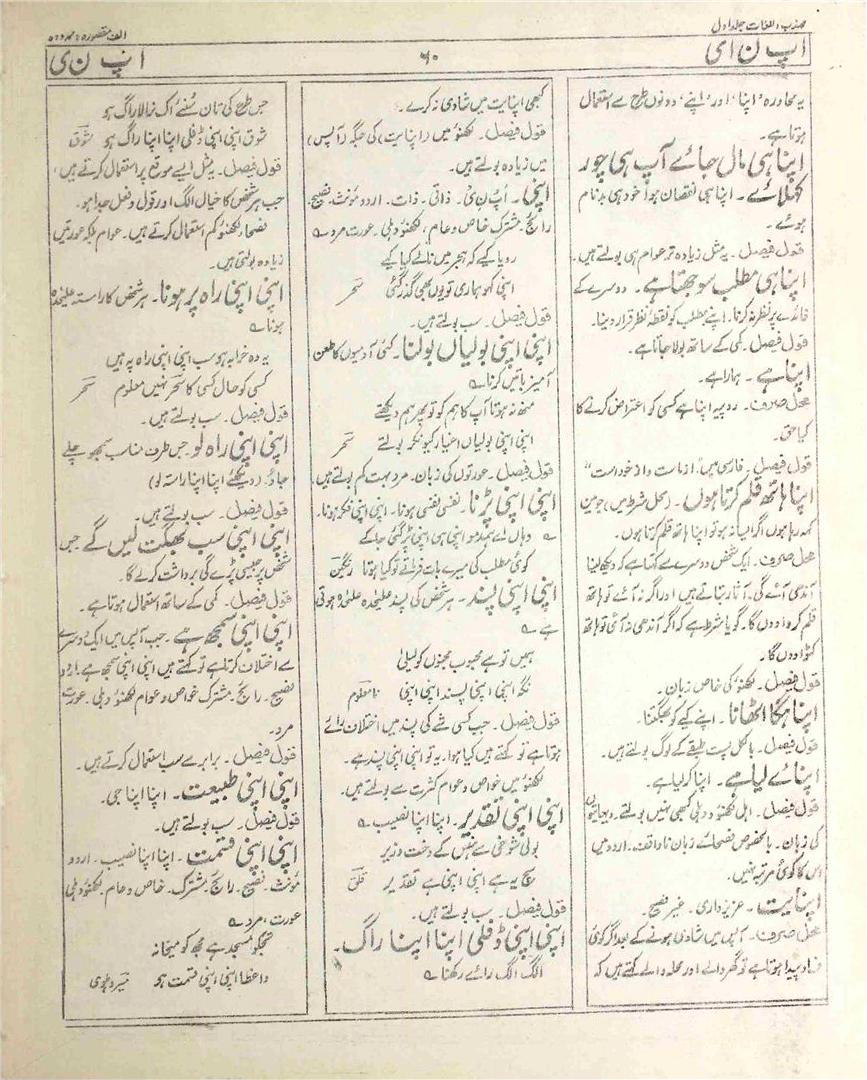 مہذب اللغات جلد اول
الف مقصورہ
اپ ن ای
۶۰
اپ ن ی
یہ محاورہ 'اپنا' اور 'اپنے' دونوں طرح سے استعمال
ہوتا ہے۔
اپنا ہی مال جائے آپ ہی چور
کہلائے۔ اپنا ہی نقصان ہو اخود ہی بدنام
ہوئے۔
قول فیصل۔ یہ مثل زیادہ تر عوام ہی بولتے ہیں۔
اپنا ہی مطلب سوجھتا ہے۔ دوسرے کے
فائدے پر نظر نہ کرنا۔ اپنے مطلب کو نقطۂ نظر قرار دینا۔
قول فیصل۔ کمی کے ساتھ بولا جاتا ہے۔
اپنا ہے۔ ہمارا ہے۔
محل صرف۔ روپیہ اپنا ہے کسی کو اعتراض کرنے کا
کیا حق۔
قول فیصل۔ فارسی میں: از ماست و از خود است"
اپنا ہاتھ قلم کرتا ہوں۔ (محل شرط میں) جو میں
کہہ رہا ہوں اگر ایسا نہ ہو تو اپنا ہاتھ قلم کرتا ہوں۔
محل صرف۔ ایک شخص دوسرے سے کہتا ہے کہ دیکھ لینا
آندھی آئے گی۔ آثار بتاتے ہیں اور اگر نہ آئے تو ہاتھ
قلم کروا دوں گا۔ گویا شرط ہے کہ اگر آندھی نہ آئی تو ہاتھ
کٹوا دوں گا۔
قول فیصل۔ لکھنؤ کی خاص زبان۔
اپنا ہگا اٹھانا۔ اپنے کیے کو بھگتنا۔
قول فیصل۔ بالکل پست طبقے کے لوگ بولتے ہیں۔
اپنائے لیا ہے۔ اپنا کر لیا ہے۔
قول فیصل۔ اہل لکھنؤ و دہلی کبھی نہیں بولتے۔ دیہاتیوں
کی زبان۔ بالخصوص فصحائے زبان ناواقف۔ اردو میں
اس کا کوئی مرتبہ نہیں۔
اپنایت۔ عزیز داری۔ غیر فصیح۔
محل صرف۔ آپس میں شادی ہونے کے بعد اگر کوئی
فساد پیدا ہوتا ہے تو گھر والے اور محلہ والے کہتے ہیں کہ
کبھی اپنایت میں شادی نہ کرے۔
قول فیصل۔ لکھنؤ میں (اپنایت) کی جگہ (آپس)
میں زیادہ بولتے ہیں۔
اپنی۔ اَپْ نِ یْ۔ ذاتی۔ ذات۔ اردو مؤنث، فصیح۔
رائج۔ مشترک خاص و عام، لکھنؤ دہلی۔ عورت مرد ؎
رویا کیے کہ ہجر میں نالے کیا کیے
اپنی کہو ہماری تو یوں بھی گذر گئی سحر
قول فیصل۔ سب بولتے ہیں۔
اپنی اپنی بولیاں بولنا۔ کئی آدمیوں کا طعن
آمیز باتیں کرنا ؎
منھ نہ ہوتا آپ کا ہم کو تو پھر ہم دیکھتے
اپنی اپنی بولیاں اغیار کیونکر بولتے سحر
قول فیصل۔ عورتوں کی زبان۔ مرد بہت کم بولتے ہیں۔
اپنی اپنی پڑنا۔ نفسی نفسی ہونا۔ اپنی اپنی فکر ہونا۔
؎ وہاں اے ہمدمو اپنی ہی اپنی پڑ گئی جاکے
کوئی مطلب کی میرے بات فرماتے تو کیا ہوتا رنگین
اپنی اپنی پسند۔ ہر شخص کی پسند علیٰحدہ علیٰحدہ ہوتی
ہے ؎
ہمیں تو ہے محبوب مجنوں کو لیلیٰ
نظر اپنی اپنی پسند اپنی اپنی نامعلوم
قول فیصل۔ جب کسی شے کی پسند میں اختلاف رائے
ہوتا ہے تو کہتے ہیں کیا ہوا۔ یہ تو اپنی اپنی پسند ہے۔
لکھنؤ میں خواص و عوام کثرت سے بولتے ہیں۔
اپنی اپنی تقدیر۔ اپنا اپنا نصیب ؎
بولی شوخی سے ہنس کے دخت وزیر
سچ یہ ہے اپنی اپنی ہے تقدیر قلق
قول فیصل۔ سب بولتے ہیں۔
اپنی اپنی ڈفلی اپنا اپنا راگ۔
الگ الگ رائے رکھنا ؎
جس طرح کی تان سنئے اک نرالا راگ ہو
شوق اپنی اپنی ڈفلی اپنا اپنا راگ ہو شوق
قول فیصل۔ یہ مثل ایسے موقع پر استعمال کرتے ہیں،
جب ہر شخص کا خیال الگ اور قول و فعل جدا ہو۔
فصحاء لکھنؤ کم استعمال کرتے ہیں۔ عوام بلکہ عورتیں
زیادہ بولتی ہیں۔
اپنی اپنی راہ پر ہونا۔ ہر شخص کا راستہ علیٰحدہ
ہونا ؎
یہ وہ خرابہ ہو سب اپنی اپنی راہ پہ ہیں
کسی کو حال کسی کا سحر نہیں معلوم سحر
قول فیصل۔ سب بولتے ہیں۔
اپنی اپنی راہ لو۔ جس طرف مناسب سمجھو چلے
جاؤ۔ (دیکھئے اپنا اپنا راستہ لو)
قول فیصل۔ سب بولتے ہیں۔
اپنی اپنی سب بھگت لیں گے جس
شخص پر جیسی پڑے گی برداشت کرلے گا۔
قول فیصل۔ کمی کے ساتھ استعمال ہوتا ہے۔
اپنی اپنی سمجھ ہے۔ جب آپس میں ایک دوسرے
سے اختلاف کرتا ہے تو کہتے ہیں اپنی اپنی سمجھ ہے۔ اردو
فصیح۔ رائج۔ مشترک خواص و عوام لکھنؤ دہلی۔ عورت
مرد۔
قول فیصل۔ برابر سے سب استعمال کرتے ہیں۔
اپنی اپنی طبیعت۔ اپنا اپنا جی۔
قول فیصل۔ سب بولتے ہیں۔
اپنی اپنی قسمت۔ اپنا اپنا نصیب۔ اردو
مؤنث۔ فصیح۔ رائج۔ مشترک۔ خاص و عام۔ لکھنؤ دہلی
عورت، مرد ؎
تجکو مسجد ہے مجھ کو میخانہ
واعظا اپنی اپنی قسمت ہو میر دہلوی